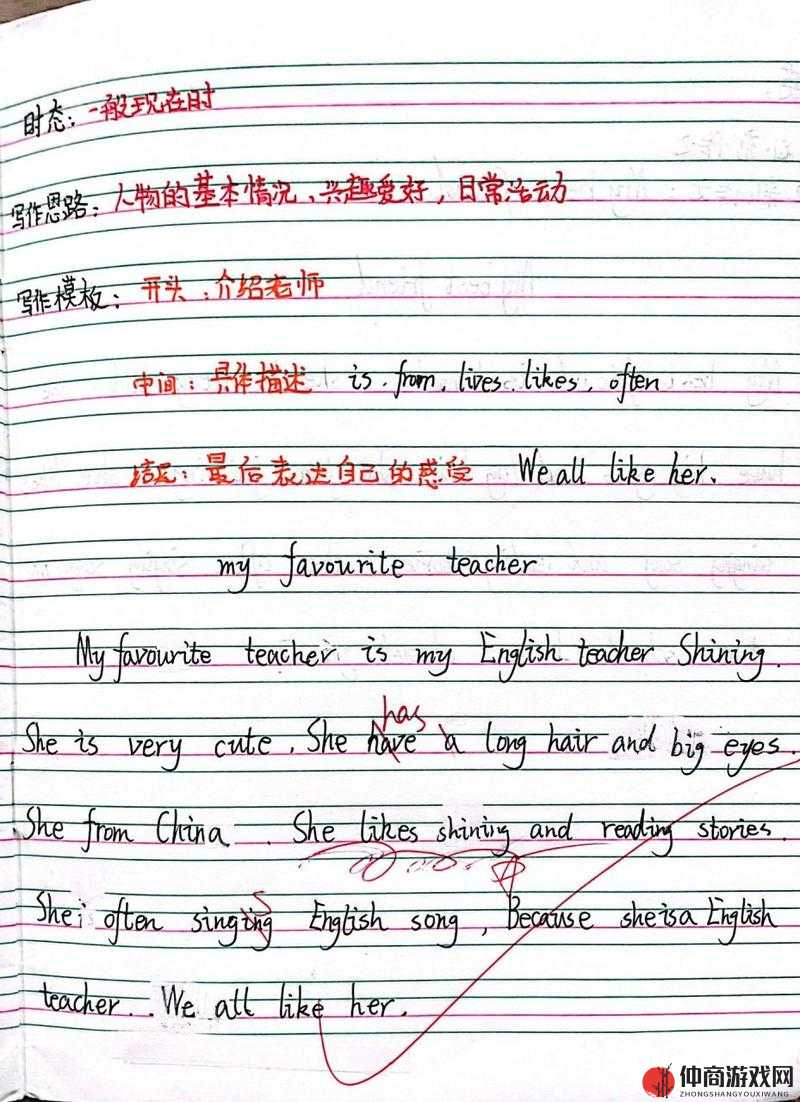 时态：一般现在时
写作思路：人物的基本情况、兴趣爱好，日常活动
写作模板：开头：介绍老师
中间：具体描述 is. from. lives. likes. often
结尾：最后表达自己的感受 We all like her.
my favourite teacher
My favourite teacher is my English teacher Shining.
has
She is very cute. She have a long hair and big eyes.
She from China. She likes shining and reading stories.
s
She often singing English song, Because she is a English
teacher. We all like her.
仲商游戏网
ZHONGSHANGYOUXIWANG